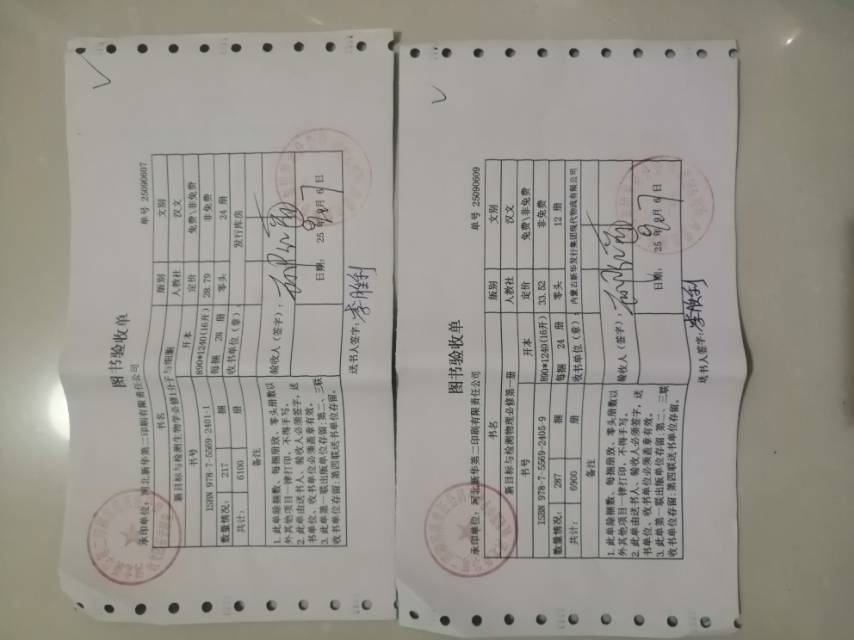 图书验收单
承印单位：河北新华第二印刷有限责任公司 单号 25090607
书名 版别 文别
新目标与检测生物学必修1分子与细胞 人教社 汉文
书号 开本 定价 免费\非免费
ISBN 978-7-5569-2401-1 890*1240(16开) 28.79 非免费
数量情况： 217 捆 每捆 28 册 零头 24 册
共计： 6100 册 收书单位（章）： 发行库房
备注
1. 此单除捆数、每捆册数、零头册数以
外其他项目一律打印，不得手写。
2. 此单由送书人、验收人必须签字，送
书单位、收书单位必须盖章有效。
3. 此单第一联出版单位存留、第二、三联
收书单位存留；第四联送书单位存留。
验收人（签字）：
日期： 25 年 9 月 6 日
送书人签字：李胜利
图书验收单
承印单位：河北新华第二印刷有限责任公司 单号 25090609
书名 版别 文别
新目标与检测物理必修第一册 人教社 汉文
书号 开本 定价 免费\非免费
ISBN 978-7-5569-2405-9 890*1240(16开) 33.52 非免费
数量情况： 287 捆 每捆 24 册 零头 12 册
共计： 6900 册 收书单位（章）： 内蒙古新华发行集团现代物流有限公司
备注
1. 此单除捆数、每捆册数、零头册数以
外其他项目一律打印，不得手写。
2. 此单由送书人、验收人必须签字，送
书单位、收书单位必须盖章有效。
3. 此单第一联出版单位存留；第二、三联
收书单位存留；第四联送书单位存留。
验收人（签字）：
日期： 25 年 9 月 6 日
送书人签字：李胜利